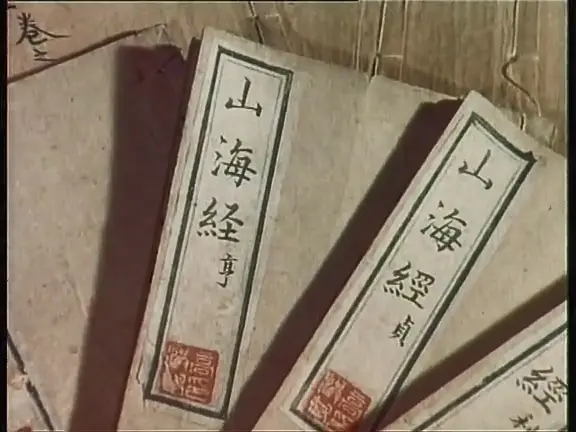 卷之
山海経亨
山海經貞
經